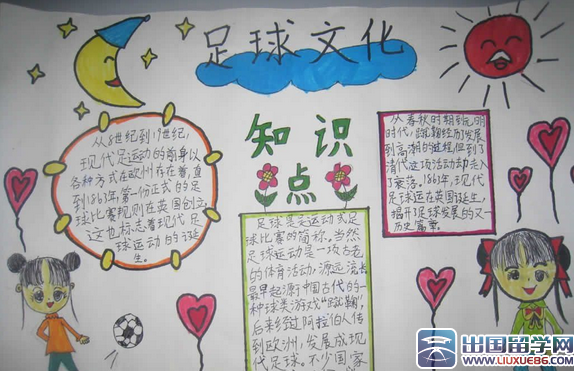 足球文化
知识
点
从8世纪到19世纪,
现代足运动的前身以
各种方式在欧州存在着,直
到1863年第一份正式的足
球比赛规则在英国创立,
这也标志着现代足
球运动的诞
生。
足球是足运动式足
球比赛的简称。当然
足球运动是一项古老
的体育活动,源远流长
最早起源于中国古代的一
种球类游戏"蹴鞠",
后来经过阿拉伯人传
到欧洲,发展成现
代足球。不少国家
从春秋时期到明
时代,蹴鞠经历了发展
到高潮的过程但到了
清代这项活动却走入
了衰落。1863年,现代
足球运在英国诞生,
揭开足球发展的又一
历史篇章。
出国留学网
WWW.LIUXUE86.COM